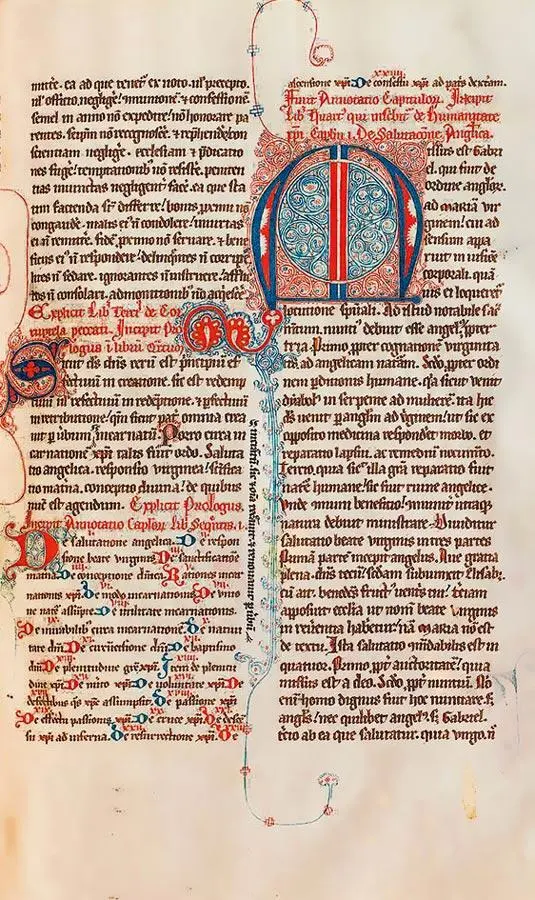 mitte. ea ad que tenet̄ ex noto. ul̓ precepto.
ul̓ officio, negligē. immunionē. ⁊ confessionē
semel in anno nō expedire. nō honorare pa
rentes. seip̄m nō recognoscē. ⁊ rep̄hendentem
scientiam negligē. ecclesiam ⁊ p̄dicatio
nes fugē. temptationib̄ nō resistē. peniten
tias iniunctas negligent̄ facē. ea que sta
tim facienda st̄ differre. bonis proximi nō
congaudē. malis ei nō condolere. iniurias
ei nō remittē. fidē proximo nō seruare. ⁊ bene
ficiis ei nō respondere. delinqn̄tes nō corripē
lites nō sedare. ignorantes nō instruere. afflic
tos nō consolari. admonitionib̄ nō adqiescē
Explicit Lib̄ Terci de Cor
ruptela peccati. Incipit Pro
logus ī librū Quar
Sicut d̄s ch̄s rerū est principiū et
effectiuū in creatione. sic est redemp
tiuū ul̓ refectiuū in redēptione. ⁊ pfectiuū
in retributione. qm̄ sicut pat̄ omnia crea
uit p̄ uibum īcarnatū. Porro circa in
carnationē xp̄i talis fuit ordo. Saluta
tio angelica. responsio uirginea.
tio matna. conceptio diuina. de quibus
nūc est agendum. Explicit Prologus.
Incipit Annotatio Cap̄lor Lib̄ Seqntis. i.
De salutatione angelica. De respon
sione beate uirginis. De sanctificatione
matna. De conceptione dn̄ica. Rationes incar
nationis xp̄i. De modo incarnationis. De unio
ne nat̄e assūpte. De utilitate incarnationis.
De mirabilib̄ circa incarnationē. De natiui
tate dn̄i. De circūcisione dn̄i. De baptismo
dn̄i. De plenitudine gr̄e xp̄i. Item de plenitu
dine xp̄i. De miro xp̄i. De uoluntate xp̄i. De
defectib̄ q̄s xp̄c assumpsit. De passione xp̄i
De effectu passionis xp̄i. De cruce xp̄i. De desce
su xp̄i ad inferna. De resurrectione xp̄i. De
ascensione xp̄i. De consessu xp̄i ad pat̄s dextram.
Finit Annotatio Capitulor. Incipit
Lib̄ Quart̄ qui inscribit̄ de Humanitate
xp̄i. Cap̄lm I. De Salutacōne Anglica.
Missus est Gabri
el. qui fuit de
ordine anglor.
ad mariā uir
ginem. cui ad
sensum appa
ruit in uisione
corporali. quā
uis et loqueret̄
locutione sp̄uali. Ad istud notabile sac̄
mētum. mitti debuit esse angel̄. p̄pter
tria. Primo p̄pter cognationē uirginita
tis ad angelicam natām. Scdo. p̄pter ordi
nem p̄ditionis humane. q̄a sicut uenit
dyabol̄ in serpente ad mulierē. ita hic
d̄s uenit p̄ anglm ad v̄ginem. ut sic ex
opposito medicina respondeat morbo. et
reparatio lapsui. ac remediū nocumēto.
Tercio. quia sic illa grā reparatio fuit
nature humane. sic fuit ruine angelice.
Vnde mutuū beneficiū
natura debuit ministrare. Diuiditur
salutatio beate uirginis in tres partes
Primā partē incepit angelus. Aue gratia
plena. d̄ns tecū. Scdam subiunxit Elisab.
cū ait. benedc̄s fruct̄ uentis tui. Terciam
apposuit ecclia ut nomē beate uirginis
in reuerentia habeat̄. nā maria nō est
de textu. Ista salutatio mirabilis est in
quatuor. Primo. p̄pt̄ auctoritatē. quia
missus est a deo. Scdo. p̄pt̄ nuntiū. Nō
enī homo dignus fuit hoc nuntiare. s;
angls. nec quilibet angel̄. s; Gabriel.
Tercio ab ea que salutatur. quia uirgo. n